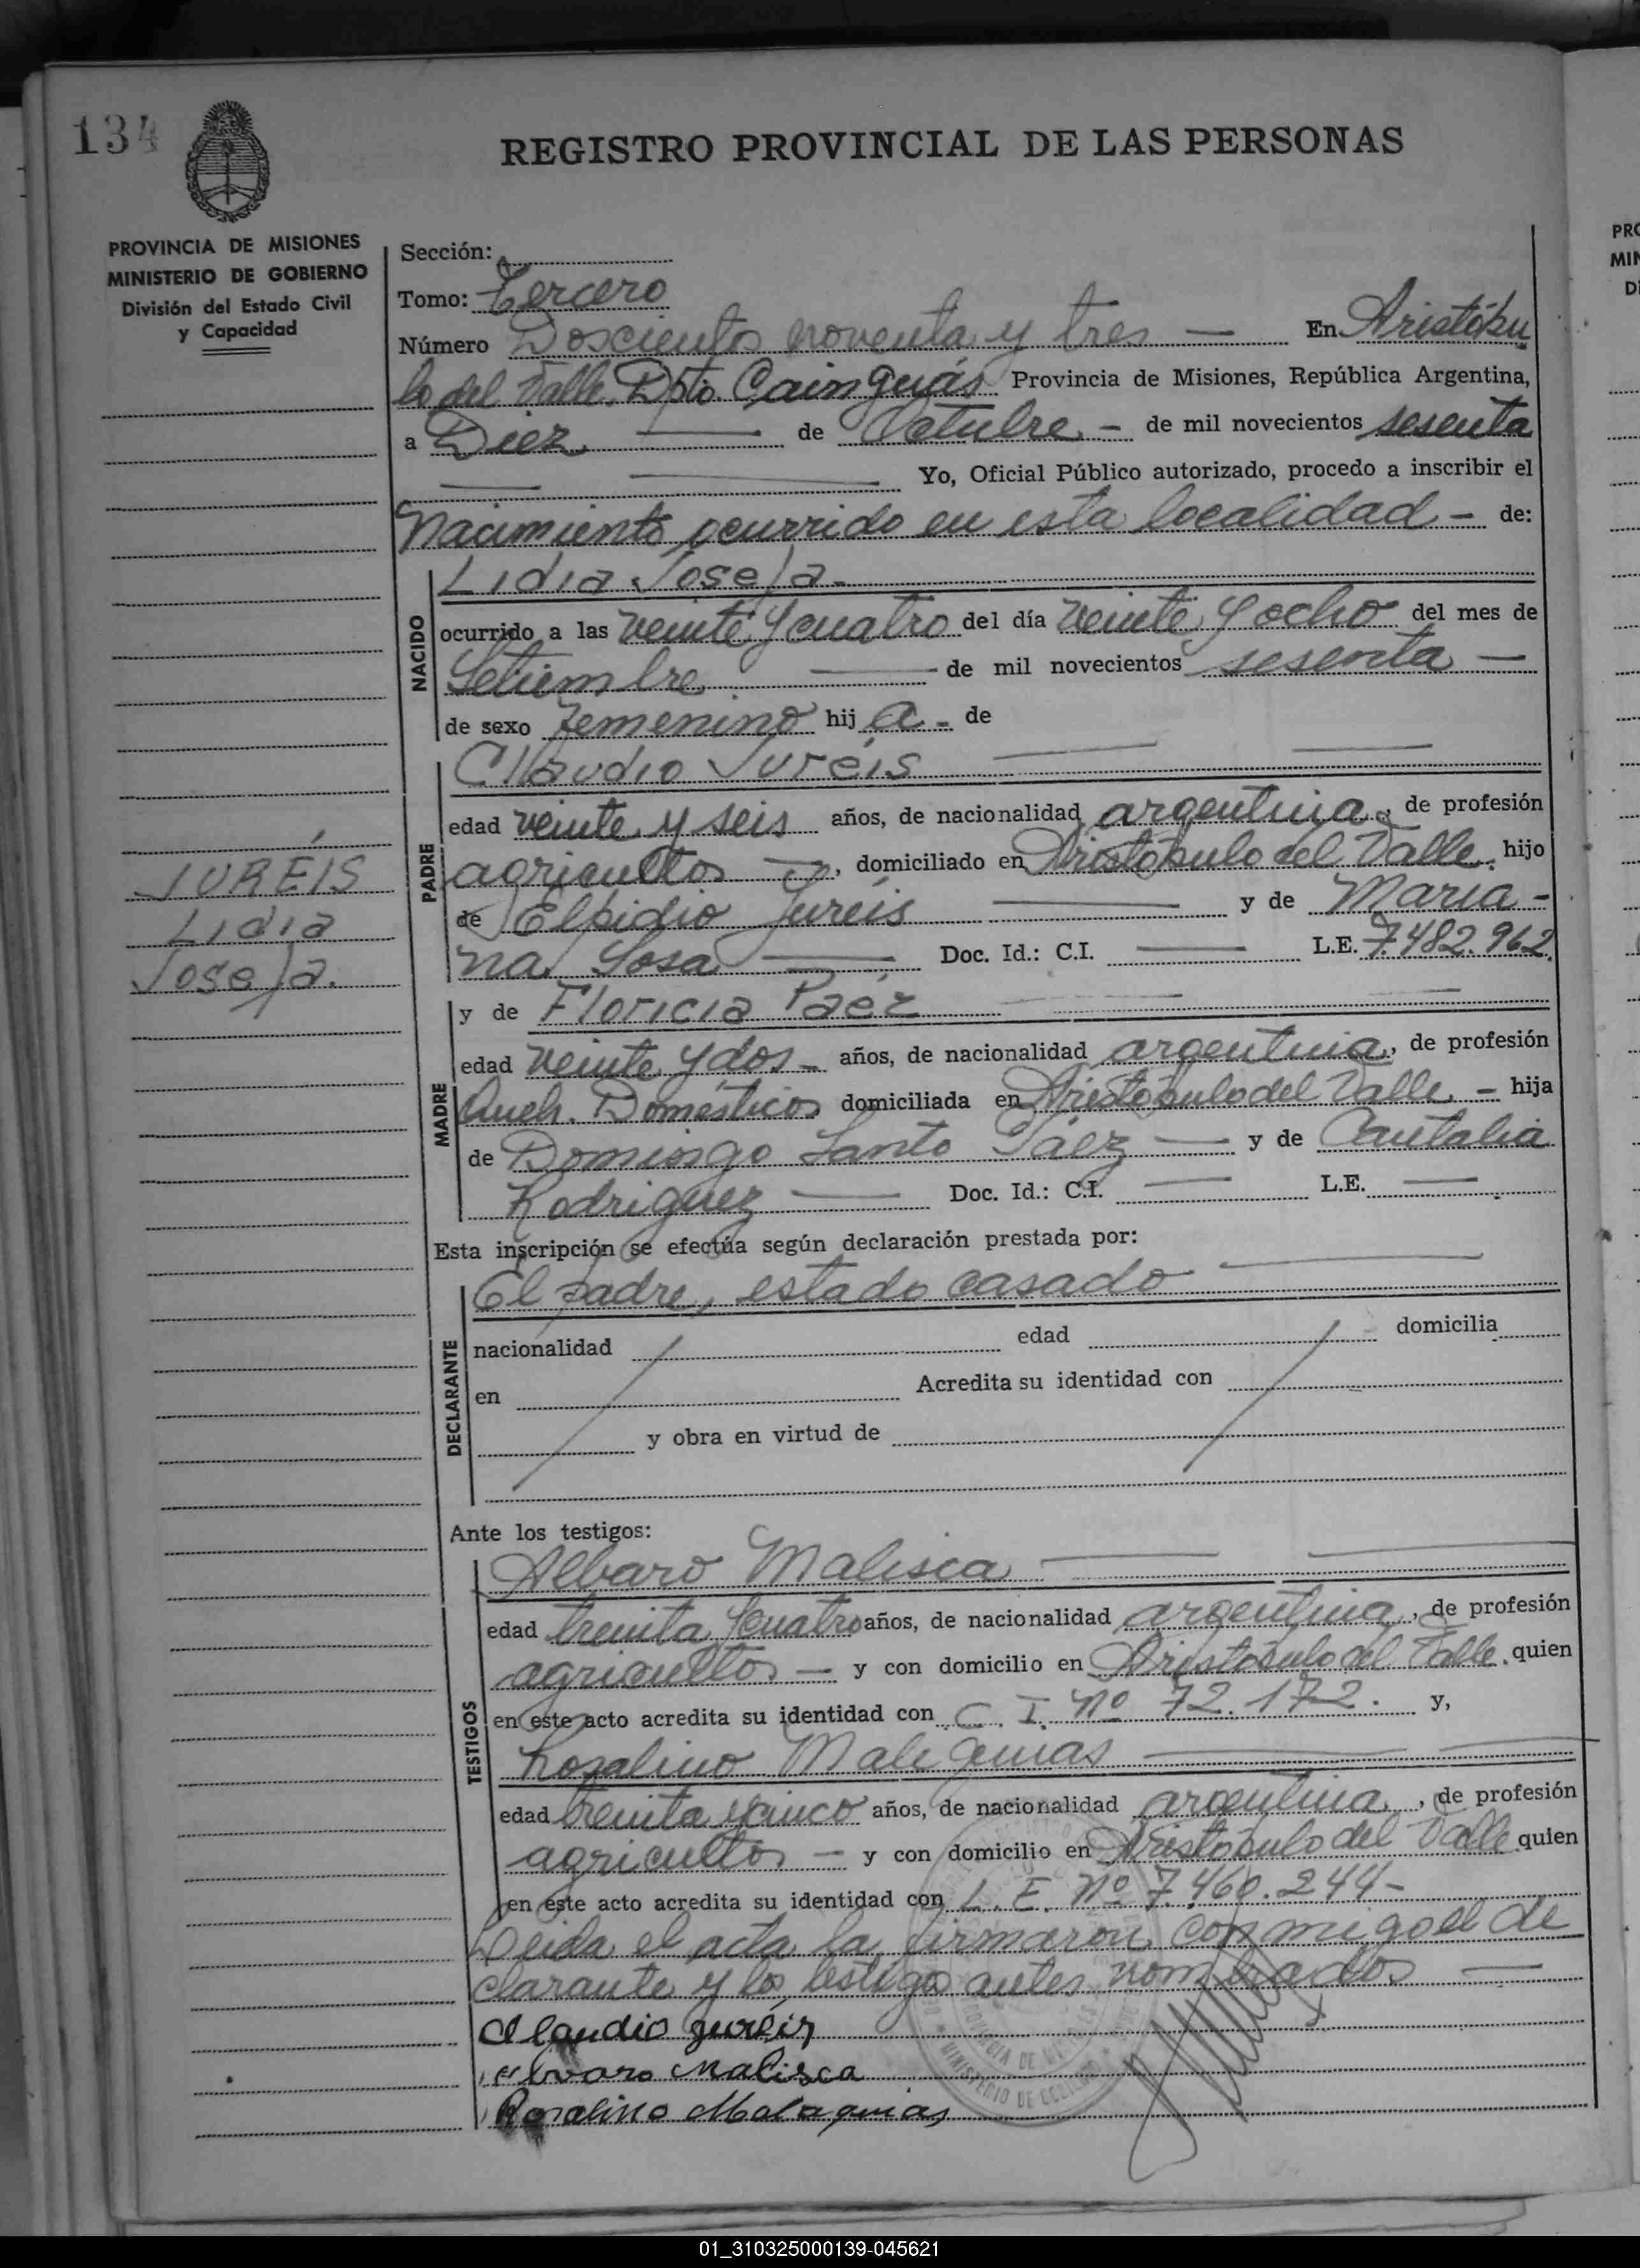 134
REGISTRO PROVINCIAL DE LAS PERSONAS
PROVINCIA DE MISIONES
MINISTERIO DE GOBIERNO
División del Estado Civil
y Capacidad
Sección:
Tomo: Tercero
Número Doscientos noventa y tres — En Aristóbu
lo del Valle. Dpto. Cainguás Provincia de Misiones, República Argentina,
a Diez — de Octubre - de mil novecientos sesenta
Yo, Oficial Público autorizado, procedo a inscribir el
Nacimiento ocurrido en esta localidad - de:
NACIDO
Lidia Josefa.
ocurrido a las veinte y cuatro del día veinte y ocho del mes de
Setiembre — de mil novecientos sesenta —
de sexo femenino hij a - de
JURÉIS
Lidia
Josefa.
PADRE
Cllaudio Juréis
edad veinte y seis años, de nacionalidad argentina, de profesión
agricultor —, domiciliado en Aristóbulo del Valle. hijo
de Elpidio Juréis — y de Maria -
na Sosa — Doc. Id.: C.I. — L.E. 7.482.962
MADRE
y de Floricia Paéz
edad veinte y dos - años, de nacionalidad argentina, de profesión
Queh. Domésticos domiciliada en Aristóbulo del Valle - hija
de Domingo Santo Páez — y de Cantalia
Rodriguez — Doc. Id.: C.I. — L.E. —
Esta inscripción se efectúa según declaración prestada por:
DECLARANTE
El padre, estado casado
nacionalidad edad domicilia
en Acredita su identidad con
y obra en virtud de
Ante los testigos:
TESTIGOS
Albaro Malisca
edad treinta y cuatro años, de nacionalidad argentina, de profesión
agricultor — y con domicilio en Aristóbulo del Valle. quien
en este acto acredita su identidad con C. I. Nº 72.172. y,
Rosalino Malequias
edad treinta y cinco años, de nacionalidad argentina, de profesión
agricultor — y con domicilio en Aristóbulo del Valle quien
en este acto acredita su identidad con L. E. Nº 7.460.244-
Leida el acta la firmaron conmigo el de
clarante y los testigos antes nombrados —
Cllaudio Juréis
Alvaro Malisca
Rosalino Malaquias
MINISTERIO DE GOBIERNO
PRO
MIN
Di
01_310325000139-045621